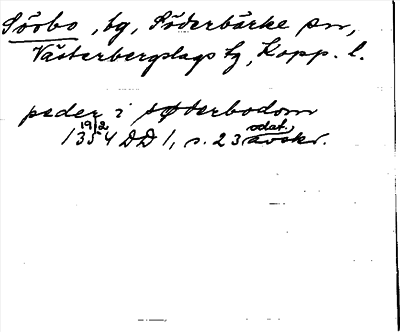 Sörbo, by, Söderbärke sn,
Västerbergslags tg, Kopp. l.
peder i søterbodom
19/2 odat.
1354 DD 1, s. 23 avskr.